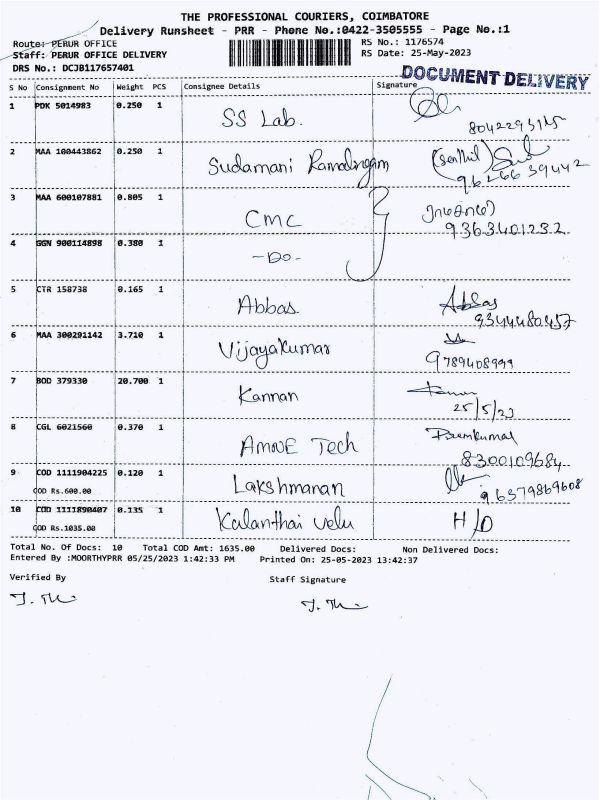 THE PROFESSIONAL COURIERS, COIMBATORE
Delivery Runsheet - PRR - Phone No.:0422-3505555 - Page No.:1
Route: PERUR OFFICE RS No.: 1176574
Staff: PERUR OFFICE DELIVERY RS Date: 25-May-2023
DRS No.: DCJB117657401
DOCUMENT DELIVERY
S No Consignment No Weight PCS Consignee Details Signature
1 PDK 5014983 0.250 1 SS Lab.
8042293145
2 MAA 100443862 0.250 1 Sudamani Ramalingam (Senthil)
9626639442
3 MAA 600107881 0.805 1 CMC
9363401232
4 GGN 900114898 0.380 1 -Do-
5 CTR 158738 0.165 1 Abbas Abbas
9344480457
6 MAA 300291142 3.710 1 Vijayakumar
9789408999
7 BOD 379330 20.700 1 Kannan
25/5/23
8 CGL 6021560 0.370 1 Tech Premkumar
8300109684
9 COD 1111904225 0.120 1 Lakshmanan
COD Rs.600.00 96379869608
10 COD 1111890407 0.135 1 Kulanthai velu H/D
COD Rs.1035.00
Total No. Of Docs: 10 Total COD Amt: 1635.00 Delivered Docs: Non Delivered Docs:
Entered By :MOORTHYPRR 05/25/2023 1:42:33 PM Printed On: 25-05-2023 13:42:37
Verified By Staff Signature